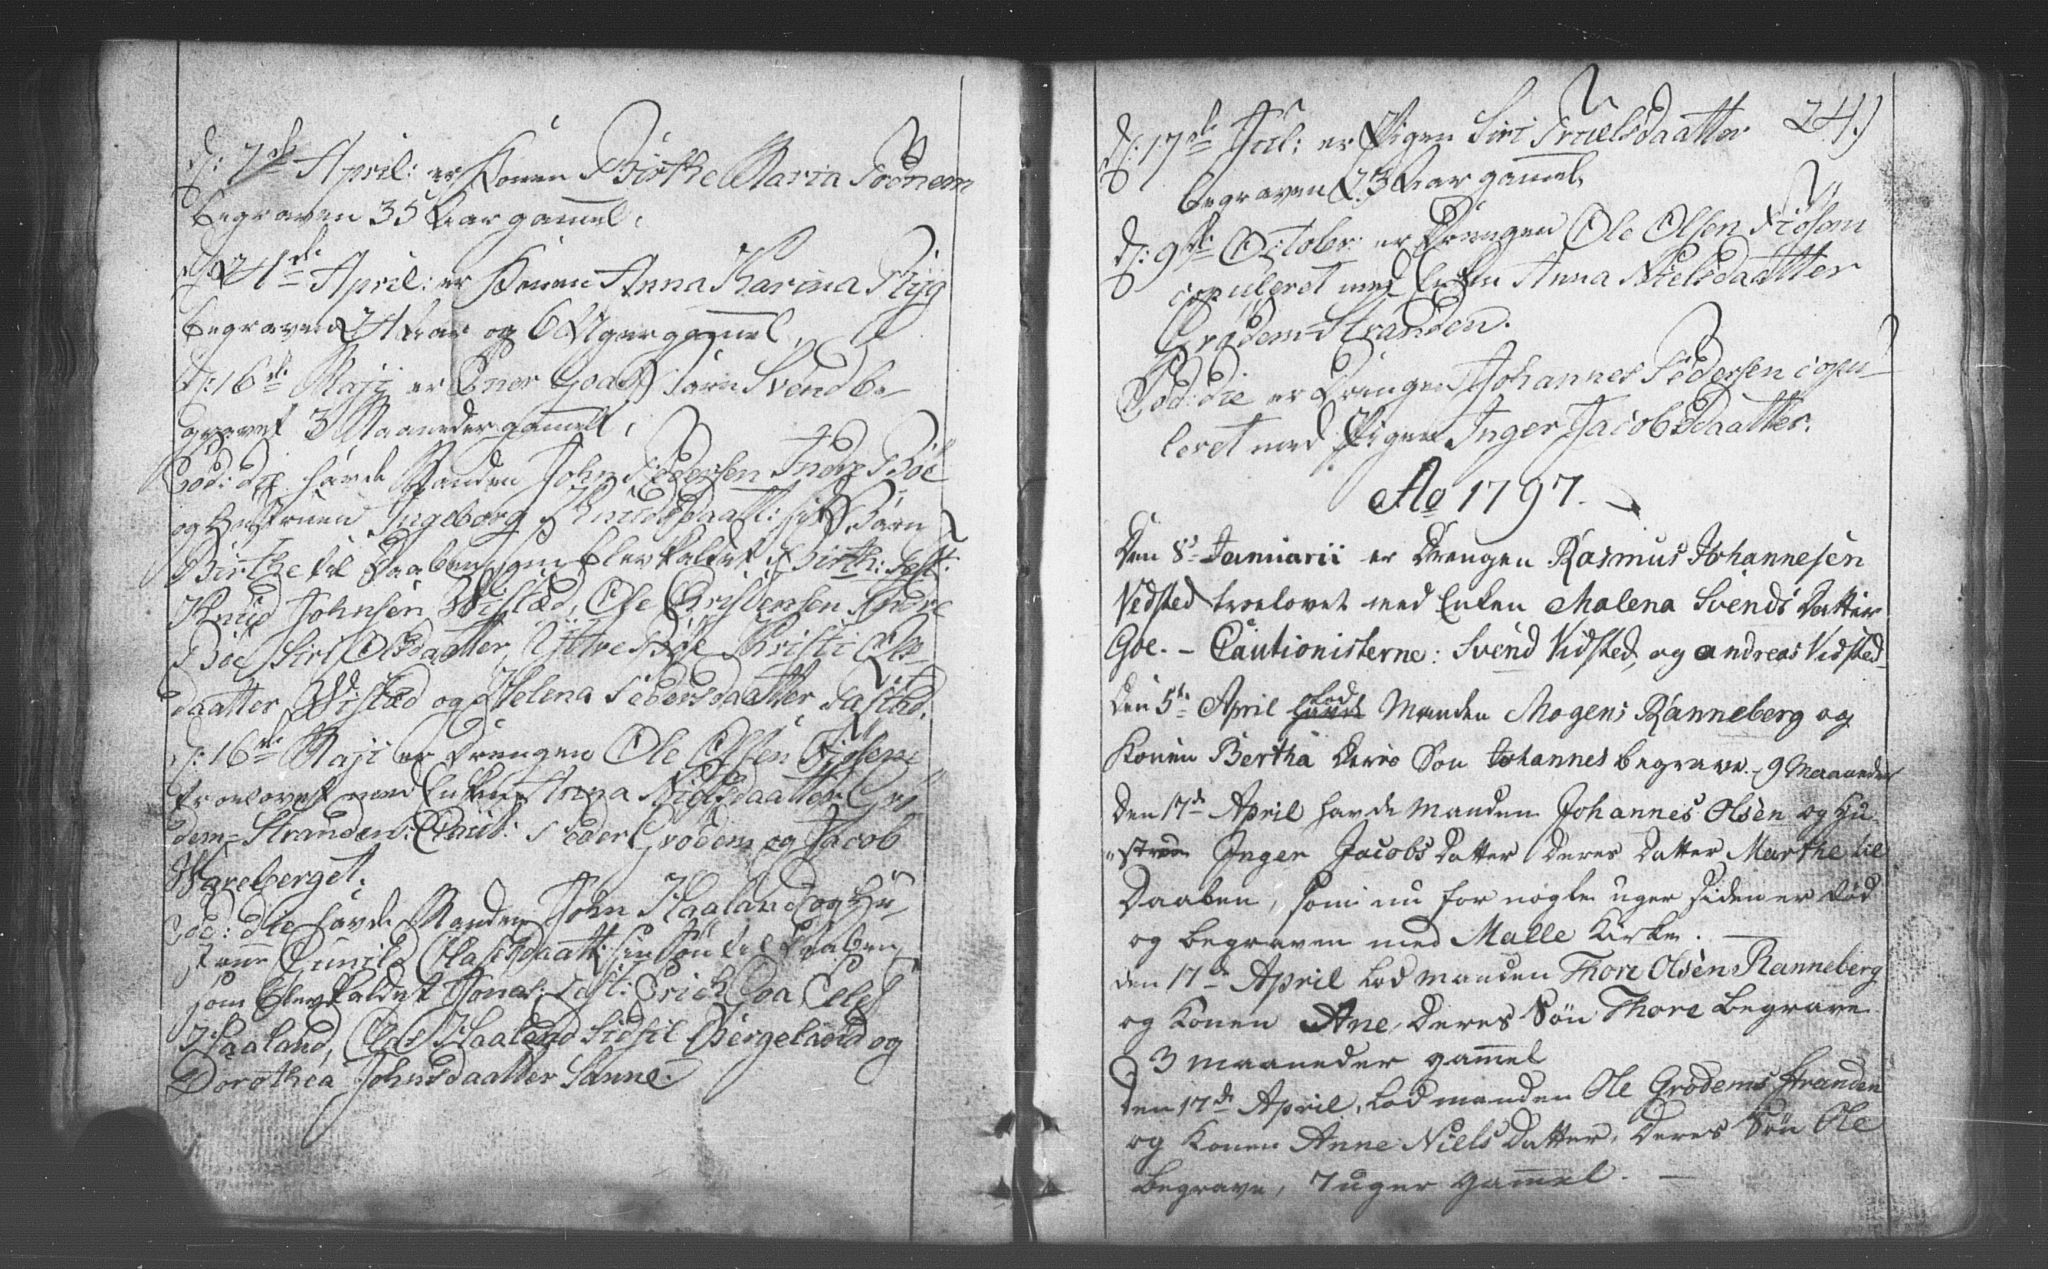 d: 7de April: er Konen Birthe Maria
begraven 35 Aar gammel.
d: 24de April: er Konen Anna Karina Rÿg
begraven 24 Aar og 6 Uger gammel.
d: 16de Maji er Goas Barn Svend be-
gravet 3 Maaneder gammelt.
Eod: die havde Manden John Pedersen Indre Böe
og Hustruen Ingeborg Knudsdaatt: sit Barn
Birthe til Daaben som blev kaldet Birth: Test:
Knud Johnsen Wistæd, Ole Christensen Indre
Böe Siri Olsdaatter, Ÿttre Böe Kristi Ols-
daatter Wistæd og Helena Pedersdaatter
d: 16de Maji er Drengen Ole Olsen Fiosene
troelovet med Enken Anna Nielsdaatter Grö-
dem-Stranden: Caut: Peder Grödem og Jacob
Wareberget.
Eod: die havde Manden John Haaland og Hu-
struen Gunild Olasdaatt: sin Sön til Daaben
som blev kaldet Jonas. Test: Erich Goa Ole
Haaland, Ola Haaland Sidsil Bergeland og
Dorothea Johnsdaatter Sanne.
24.)
d: 17de Jul: er Pigen Siri Truelsdaatter
begraven 23 Aar gammel.
d: 9de October er Drengen Ole Olsen Fiosom
copuleret med Enken Anna Nielsdaatter
Grödem-Stranden.
Eod: die er Drengen Johannes Pedersen copu-
leret med Pigen Inger Jacobsdaatter.
Ao 1797.
Den 8de Januarii er Drengen Rasmus Johannesen
Vidsted troelovet med Enken Malena Svends Datter
Goe. - Cautionisterne: Svend Vidsted, og Andreas Vidsted
den 5te April havde lod Manden Mogens Ranneberg og
Konen Bertha deres Son Johannes begrave. 9 Maaneder
Den 17de April havde Manden Johannes Olsen og Hu-
strue Inger Jacobs Datter deres Datter Marthe til
Daaben, som nu for nogle uger siden er död
og begraven med Malle Kirke.
den 17de April lod manden Thore Olsen Ranneberg
og Konen Ane, deres Sön Thore begrave
3 maaneder gammel
den 17de April, lod manden Ole Grodems Stranden
og Konen Anne Niels Datter, deres Sön Ole
begrave, 7 uger gammel.